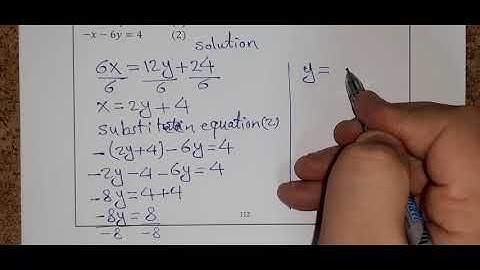 -x - 6y = 4 (2)
solution
6x = 12y + 24
6 6 6
x = 2y + 4
substitute in equation (2)
-(2y+4) - 6y = 4
-2y - 4 - 6y = 4
-8y = 4+4
-8y = 8
-8 -8
y =
112